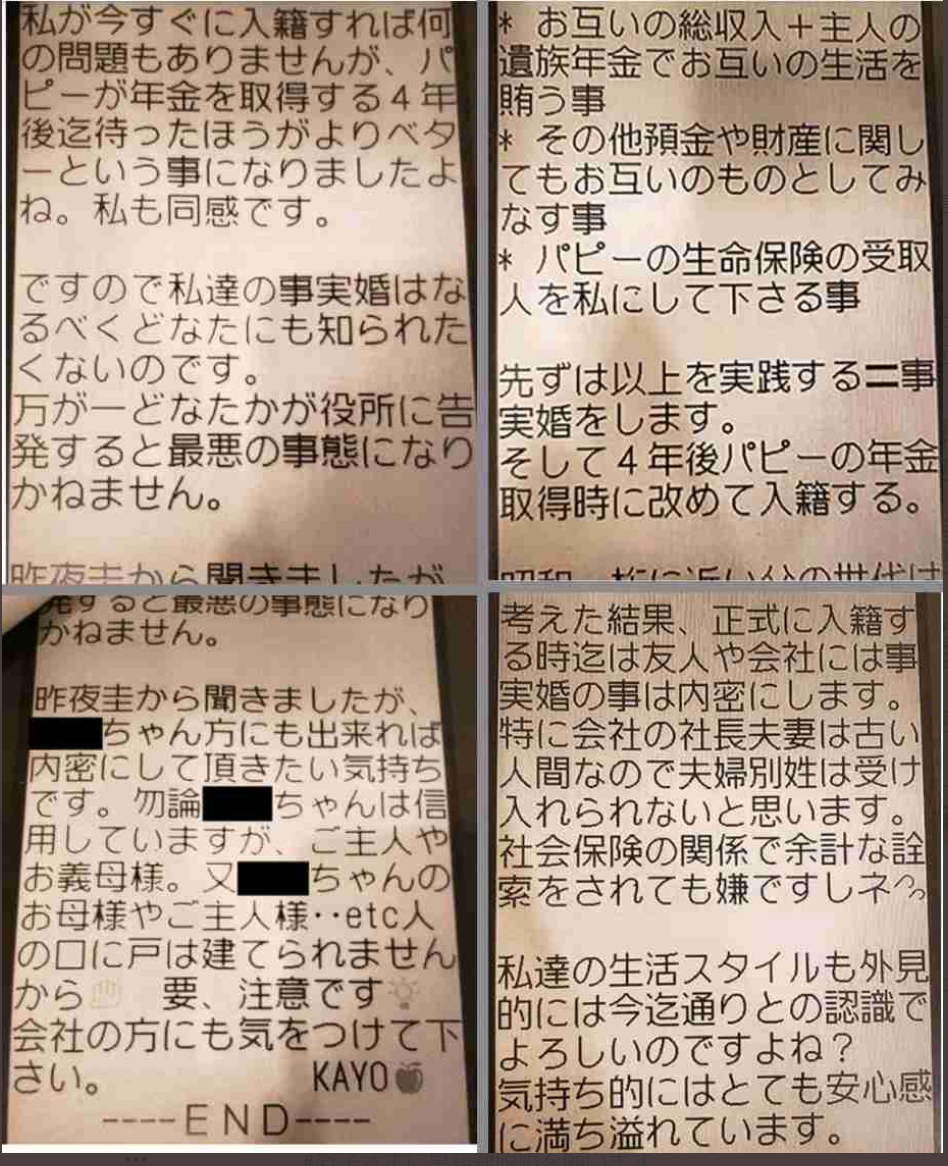 私が今すぐに入籍すれば何
の問題もありませんが、パ
ピーが年金を取得する4年
後迄待ったほうがよりベタ
ーという事になりましたよ
ね。私も同感です。
ですので私達の事実婚はな
るべくどなたにも知られた
くないのです。
万が一どなたかが役所に告
発すると最悪の事態になり
かねません。
昨夜圭から聞きましたが
* お互いの総収入+主人の
遺族年金でお互いの生活を
賄う事
* その他預金や財産に関し
てもお互いのものとしてみ
なす事
* パピーの生命保険の受取
人を私にして下さる事
先ずは以上を実践する二事
実婚をします。
そして4年後パピーの年金
取得時に改めて入籍する。
昭和一桁に近い父の世代は
発すると最悪の事態になり
かねません。
昨夜圭から聞きましたが、
ちゃん方にも出来れば
内密にして頂きたい気持ち
です。勿論 ちゃんは信
用していますが、ご主人や
お義母様。又 ちゃんの
お母様やご主人様‥etc人
の口に戸は建てられません
から 要、注意です
会社の方にも気をつけて下
さい。 KAYO
----END----
考えた結果、正式に入籍す
る時迄は友人や会社には事
実婚の事は内密にします。
特に会社の社長夫妻は古い
人間なので夫婦別姓は受け
入れられないと思います。
社会保険の関係で余計な詮
索をされても嫌ですしネ
私達の生活スタイルも外見
的には今迄通りとの認識で
よろしいのですよね?
気持ち的にはとても安心感
に満ち溢れています。